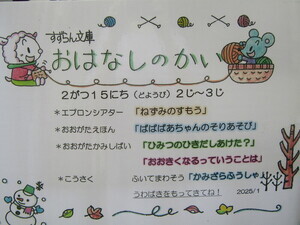 すずらん文庫
おはなしのかい
2がつ15にち(どようび)2じ~3じ
*エプロンシアター 「ねずみのすもう」
*おおがたえほん 「ばばばあちゃんのそりあそび」
*おおがたかみしばい 「ひみつのひきだしあけた?」
「おおきくなるっていうことは」
*こうさく ふいてまわそう「かみざらふうしゃ」
うわばきをもってきてね!
2025/1